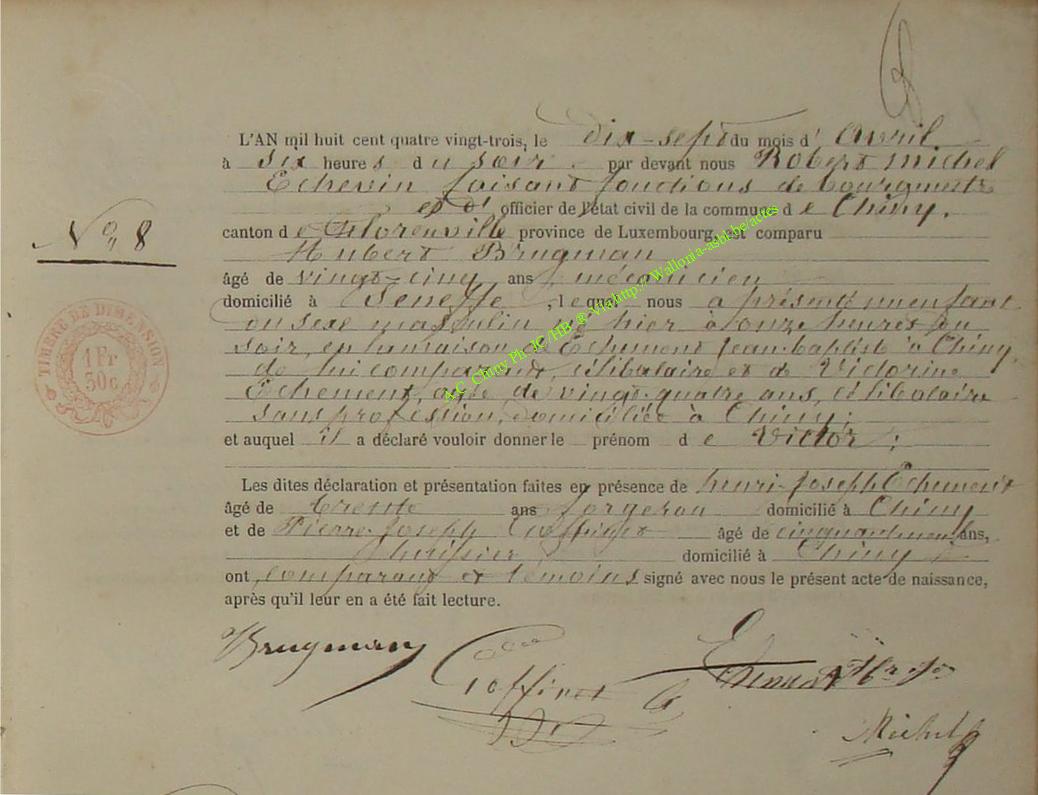 L'AN mil huit cent quatre vingt-trois, le dix-sept du mois d' Avril
à six heures du soir par devant nous Robert Michel
Echevin faisant fonctions de bourgmestre
et d' officier de l'état civil de la commune de Chiny,
N° 8
canton de Florenville province de Luxembourg, est comparu
Hubert Brugman
âgé de vingt-cinq ans mécanicien
domicilié à Seneffe, lequel nous a présenté un enfant
du sexe masculin né hier à onze heures du
soir, en la maison de Echement Jean-baptiste à Chiny,
de lui comparant, célibataire et de Victorine
Echement, agée de vingt-quatre ans, célibataire
sans profession, domiciliée à Chiny;
et auquel il a déclaré vouloir donner le prénom de Victor;
Les dites déclaration et présentation faites en présence de henri-Joseph Echement
âgé de trente ans forgeron domicilié à Chiny
et de Pierre-Joseph Goffinet âgé de ans,
huissier domicilié à Chiny
ont, comparant et témoins signé avec nous le présent acte de naissance,
après qu'il leur en a été fait lecture.
Brugman
Goffinet
Echement Hri Jos
Michel
TIMBRE DE DIMENSION
1 Fr
30 c
A.C. Chiny Ph. JC /HB ® Via http://Wallonia-asbl.be/actes